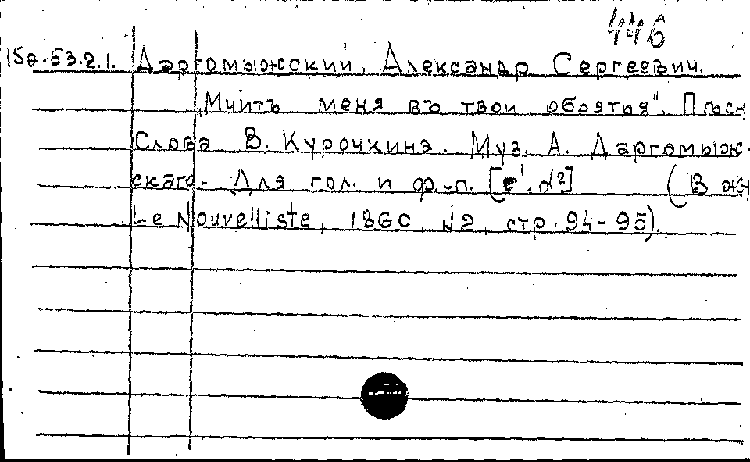 446
15а.53.2.1. Даргомыжский, Александр Сергеевич.
„Мчитъ меня въ твои объятия". Пѣсн
Слова В. Курочкина. Муз. А. Даргомыж-
скаго. Для гол. и ф.-п. [e¹. d²] (В жу
Le Nouvelliste, 1860, №2, стр. 94-95).